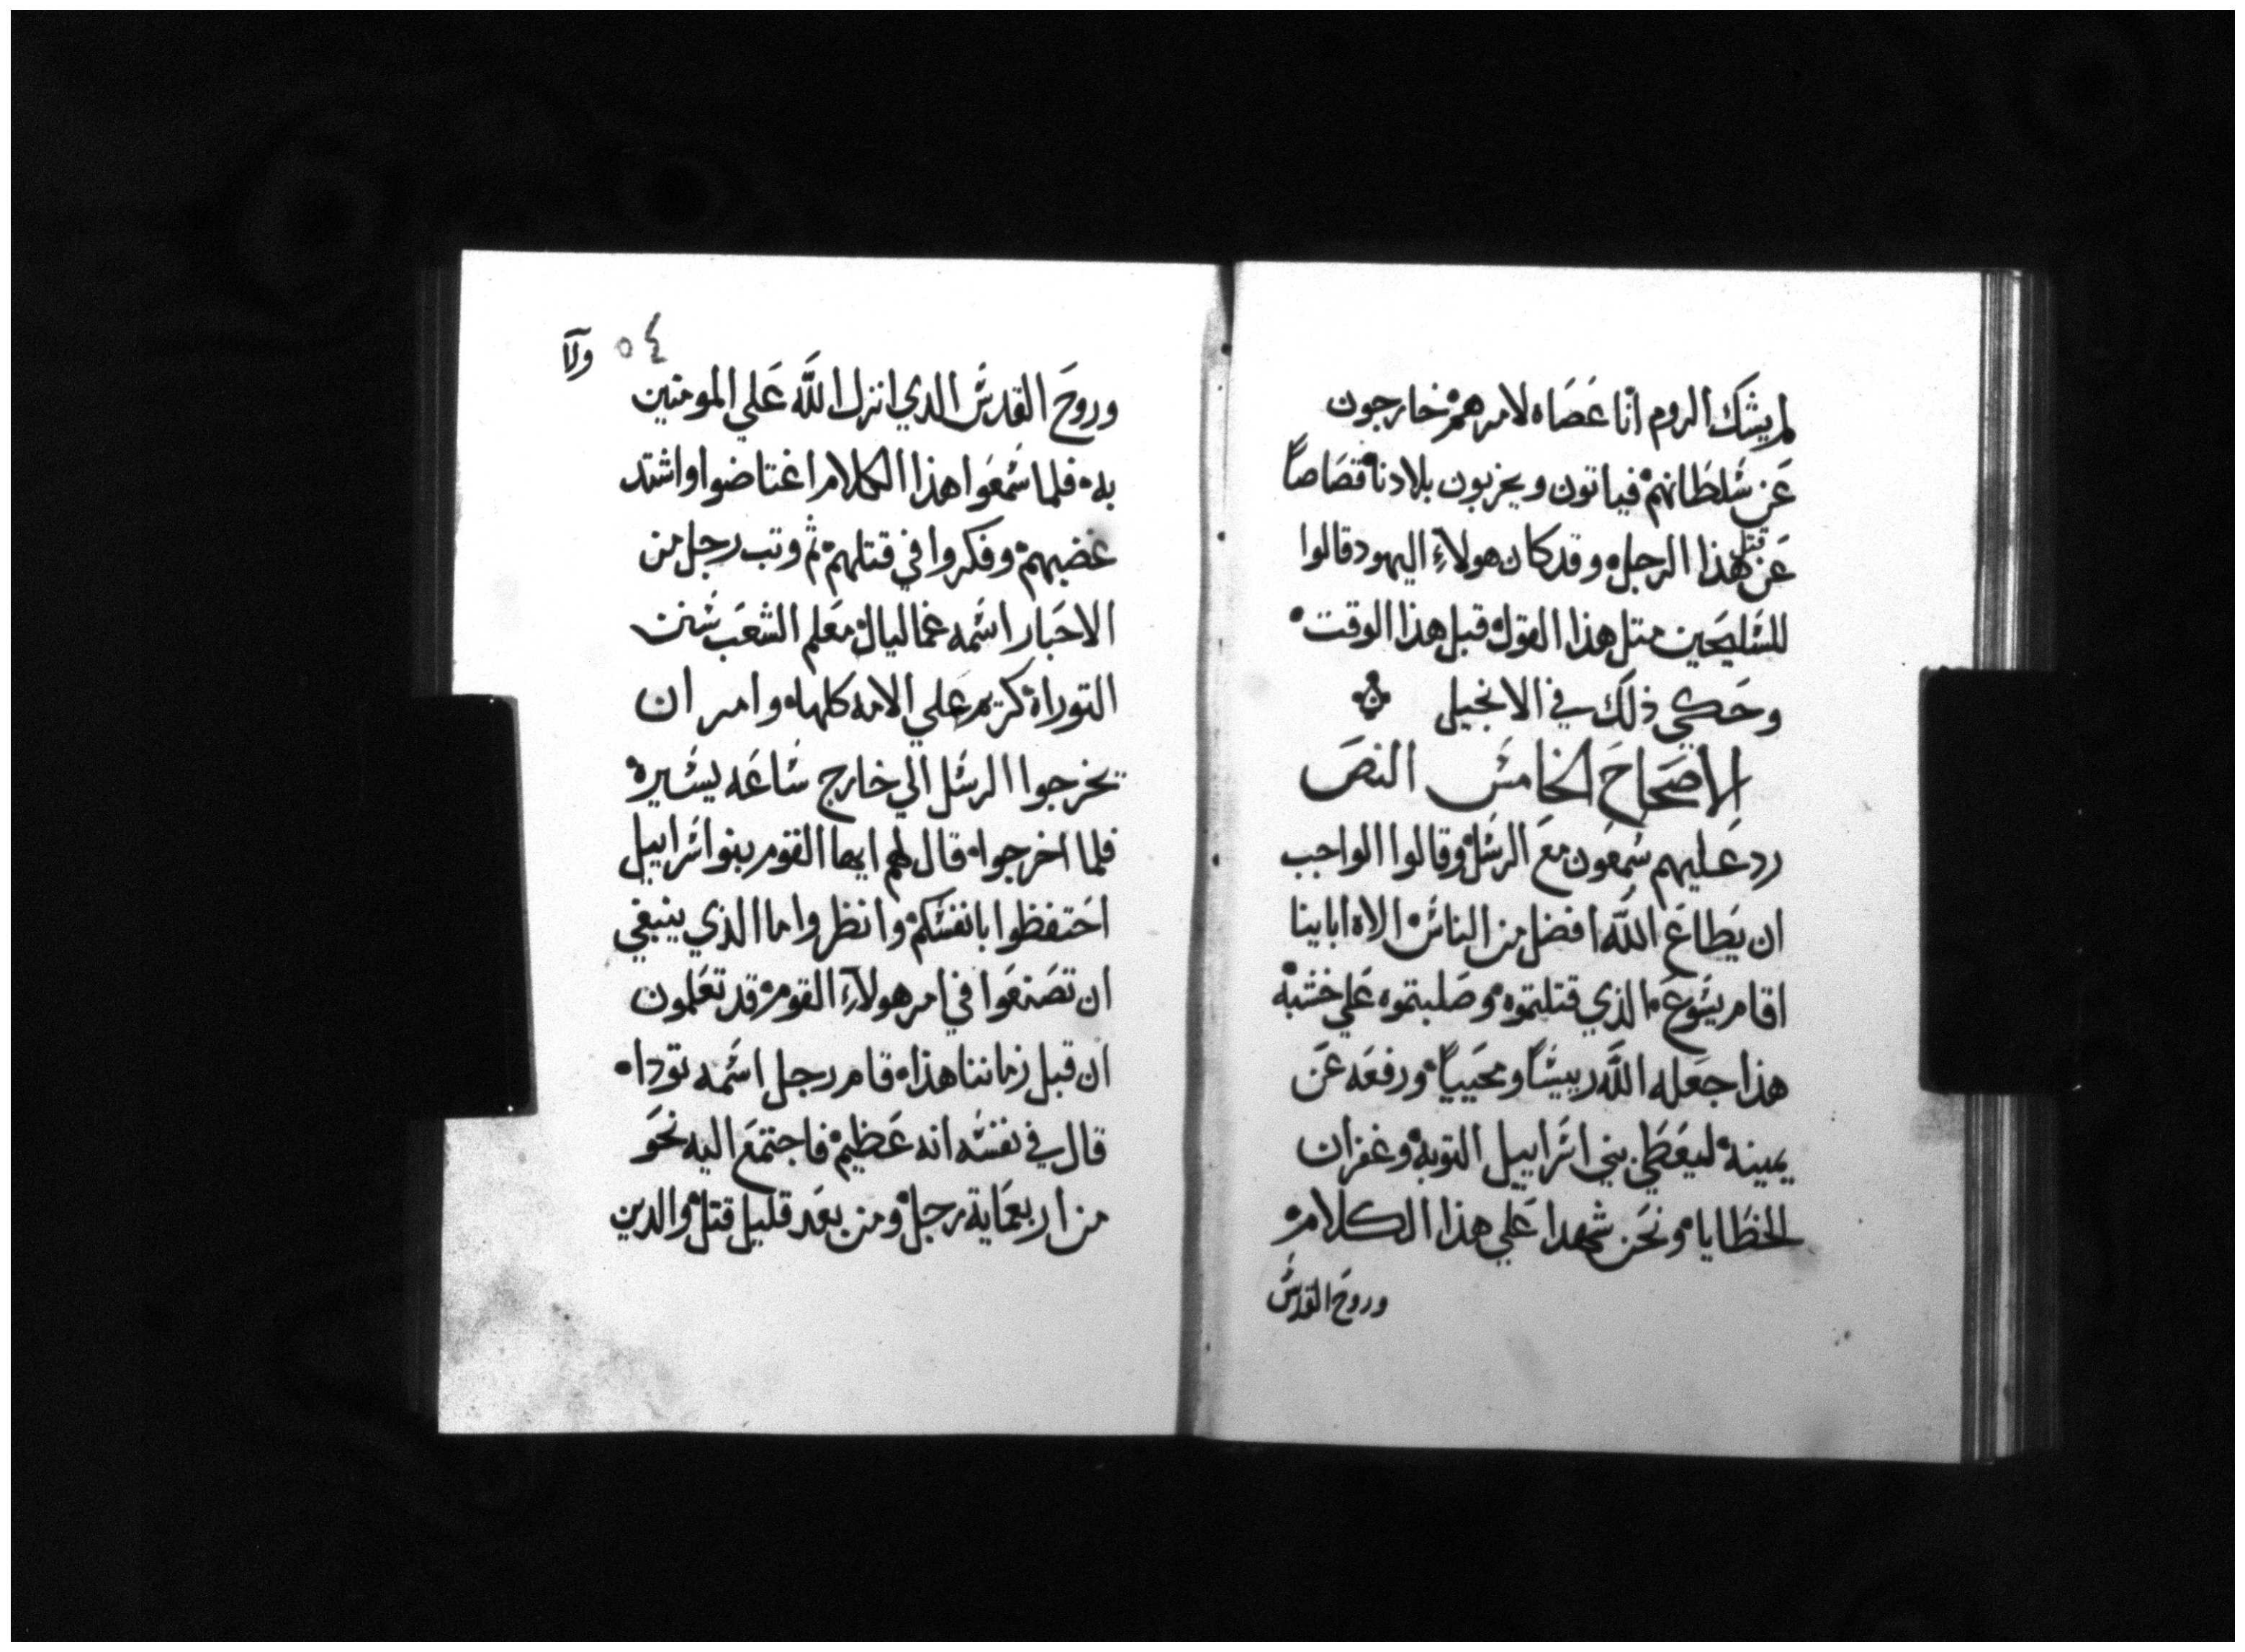 لم يشك الروم انا عصاه لامرهم خارجون
عن سلطانهم فياتون ويخربون بلادنا قصاصاً
عن قتل هذا الرجل وقد كان هولاءِ اليهود قالوا
للسليحين متل هذا القول قبل هذا الوقت
وحكي ذلك في الانجيل
الاصحاح الخامس النص
رد عليهم سمعون مع الرسل وقالوا الواجب
ان يطاع الله افضل من الناس الاه اباينا
اقام يسوع الذي قتلتموه وصلبتموه علي خشبه
هذا جعله الله ريسًا ومحيياً ورفعه عن
يمينه ليعطي بني اسراييل التوبه وغفران
الخطايا ونحن شهدا علي هذا الكلام
وروح القدس
٥٤
ولا
وروح القدس الدي انزل الله علي المومنين
به فلما سمعوا هذا الكلام اغتاضوا واشتد
غضبهم وفكروا في قتلهم ثم وتب رجل من
الاحبار اسمه غماليال معلم الشعب سنن
التوراه كريم علي الامه كلها وامر ان
يخرجوا الرسل الي خارج ساعه يسيره
فلما اخرجوا قال لهم ايها القوم بنوا اسراييل
احتفظوا بانفسكم وانظروا ما الذي ينبغي
ان تصنعوا في امر هولآءِ القوم قد تعلمون
ان قبل زماننا هذا قام رجل اسمه تودا
قال في نفسه انه عظيم فاجتمع اليه نحو
من اربعماية رجل ومن بعد قليل قتل والدين